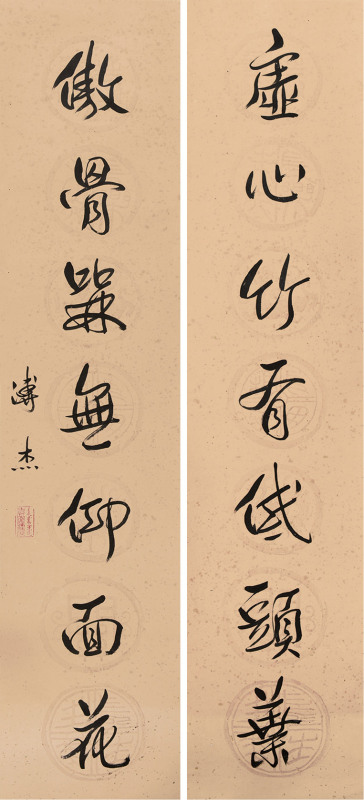 虛心竹有低頭葉
傲骨槑無仰面花
溥杰